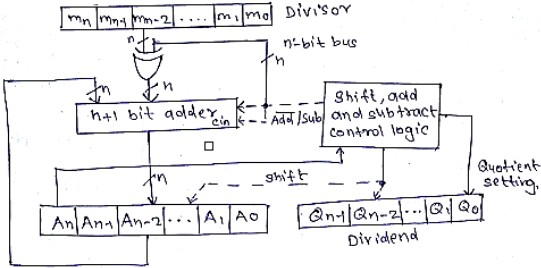 mn mn-1 mn-2 .... m1 m0 Divisor
n
n-bit bus
n
n
n
n+1 bit adder cin
Add/Sub
Shift, add
and subtract
control logic
n
shift
Quotient
setting.
An An-1 An-2 ... A1 A0
Qn-1 Qn-2 ... Q1 Q0
Dividend